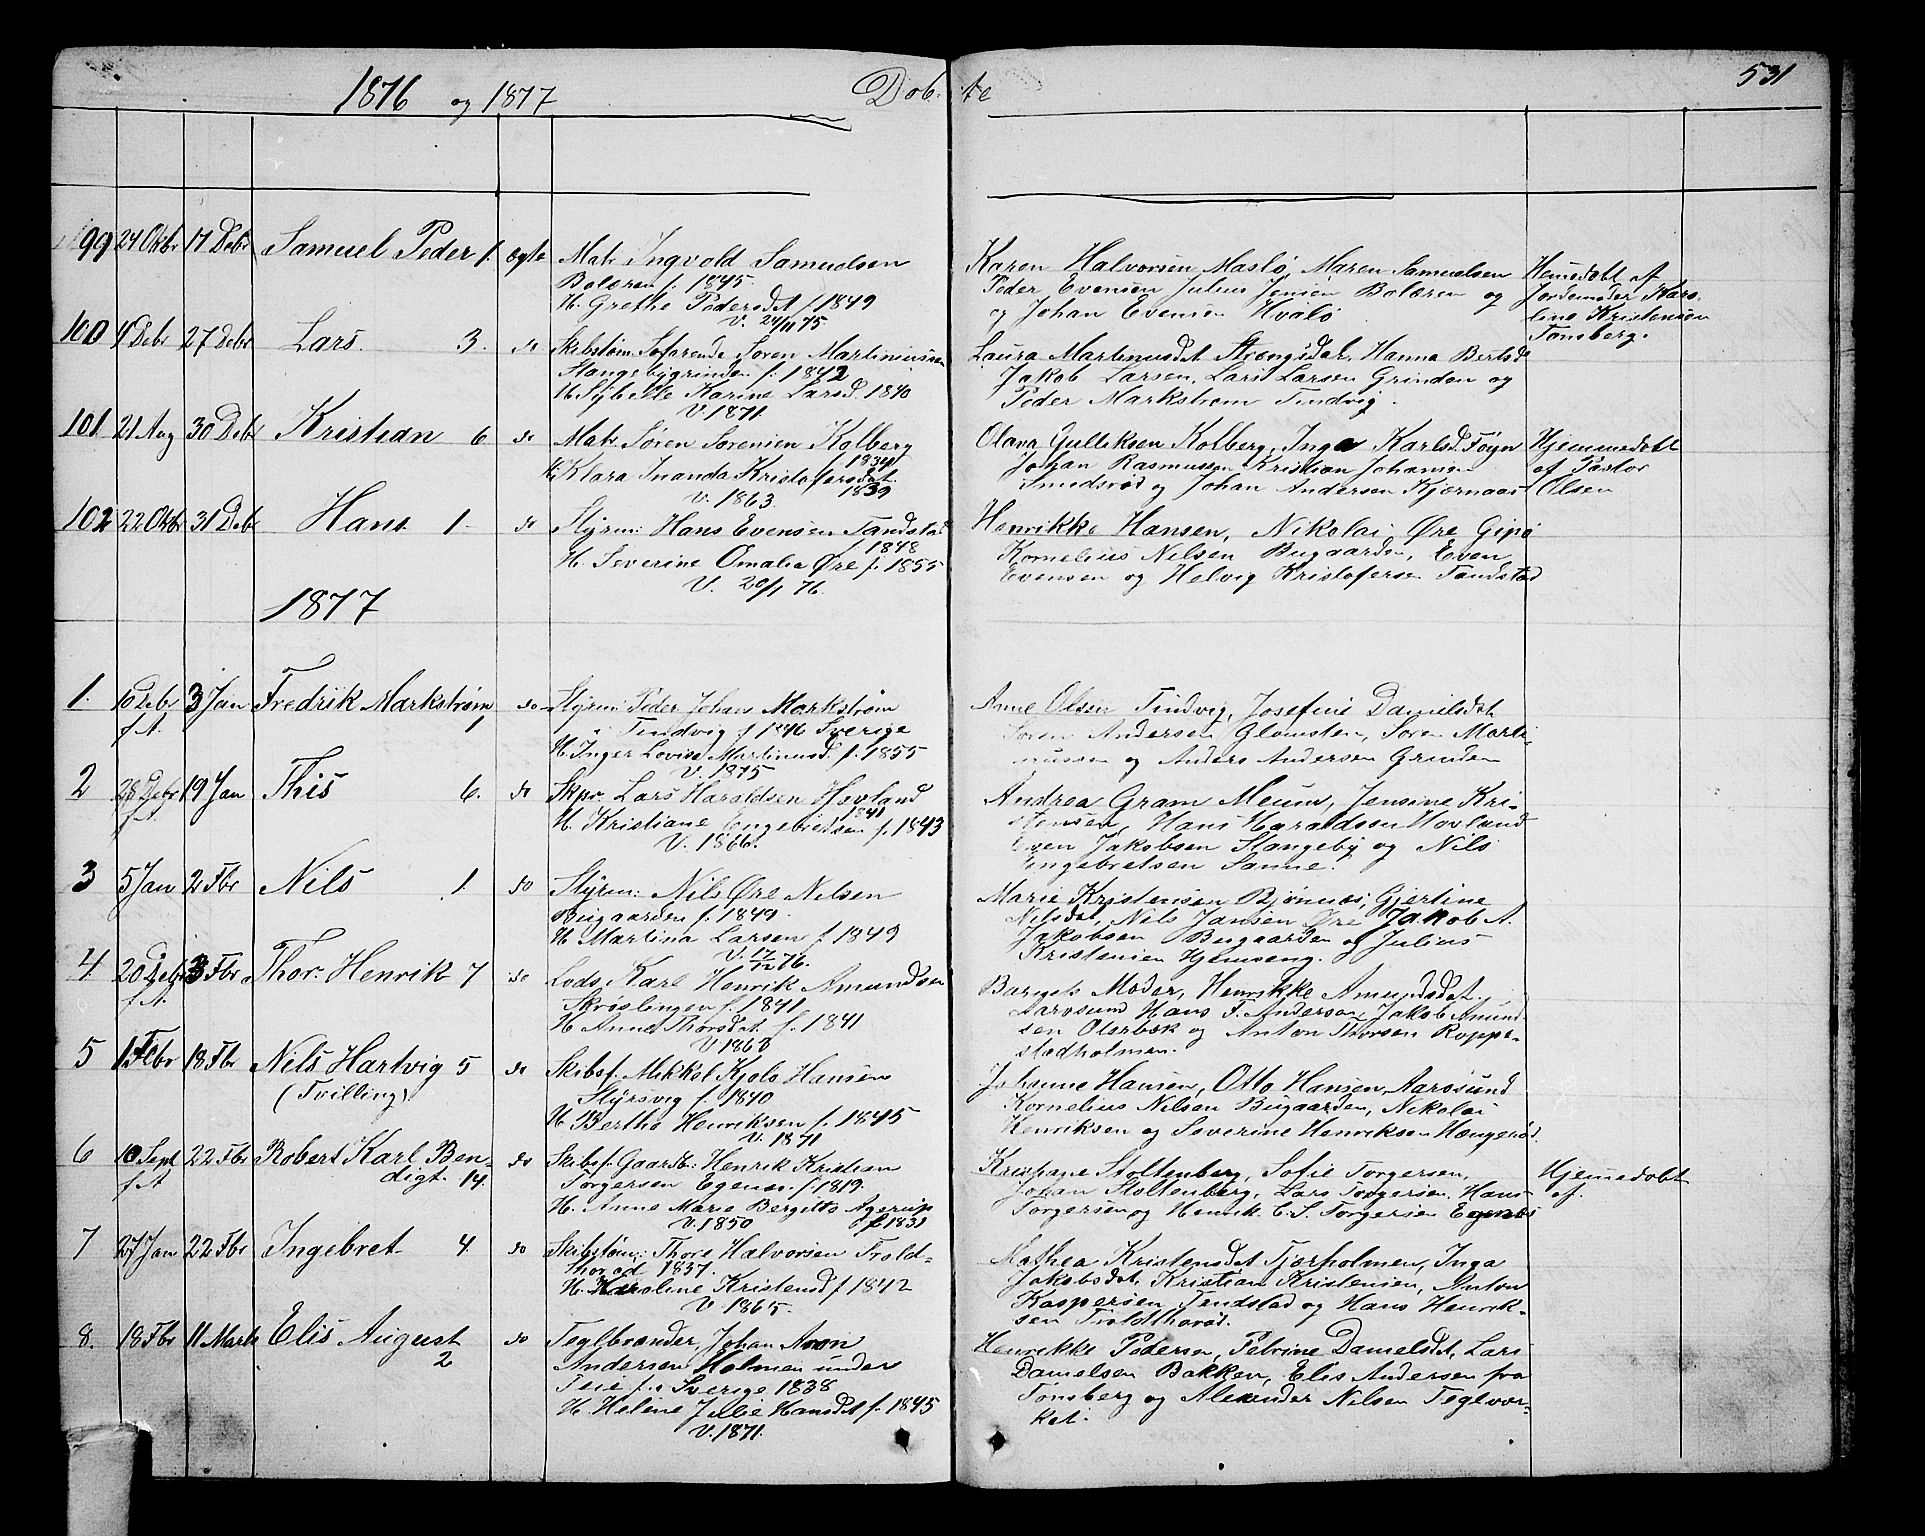 1876 og 1877 Dobte 531
99 24 Oktbr 17 Debr Samuel Peder 1. ægte Matr Ingvold Samuelsen
Bolæren f. 1845.
H. Grethe Pedersdt f. 1849
V. 24/11 75.
Karen Halvorsen Maslø, Maren Samuelsen
Peder Evensen Julius Jensen Bolæren og
og Johan Evensen Hvalø
Hemedobt af
Jordemoder Karo-
line Kristenson
Tønsberg.
100 4 Debr 27 Debr Lars. 3. do Skibstøm. Søfarende Søren Martiniussen
Slangebygrinden f. 1842
H. Sybille Karine Larsd. 1840
V. 1871.
Laura Martinusdat Strengsdal, Hanna Bertsd
Jakob Larsen, Lars Larsen Grinden og
Peder Markstrøm Tindvig.
101 21 Aug 30 Debr Kristian 6 do Matr Søren Sørensen Kolberg
f. 1834
H. Klara Inanda Kristofersdat.
1839
V. 1863.
Olava Gulliksen Kolberg, Inga Karlsd. Føyn
Johan Rasmussen Kristian Johansen
Smidsrød og Johan Andersen Kjærnaas
Hjemmedobt
af Pastor
Olsen
102 22 Oktbr 31 Debr Hans 1. do Styrm: Hans Evensen Tandstad
f. 1848
H. Severine Omalia Øre f. 1855
V. 20/1 76.
Henrikke Hansen, Nikolai Øre Gipø
Kornelius Nilsen Bugaarden, Even
Evensen og Helvig Kristofersen Tandstad
1877
1. 10 Debr f. A. 3 Jan Fredrik Markstrøm 1 do Styrm: Peder Johan Markstrøm
Tindvig f. 1846 Sverige
H. Inger Lovise Martinusd. f. 1855
V. 1875
Anne Olsen Tindvig, Josefine Danielsdat
Søren Andersen Glomsten, Søren Marti-
nussen og Anders Andersen Grinden
2 28 Debr f. A. 19 Jan This 6. do Skpr. Lars Haraldsen Hovland
1841
H. Kristiane Engebretsen f. 1843
V. 1866.
Andrea Gram Meum, Jensine Kri-
stensen, Hans Haraldssen Hovland
Even Jakobsen Slangeby og Nils
Engebretsen Sanne.
3 5 Jan 2 Fbr Nils 1. do Styrm: Nils Øre Nilsen
Bugaarden f. 1849.
H. Martina Larsen f. 1849
V. 17/12 76.
Marie Kristensen Bjønnes, Gjertine
Nilsdat, Nils Jansen Øre Jakob A.
Jakobsen Bugaarden og Julius
Kristensen Hjemseng.
4. 20 Debr f. A. 3 Fbr. Thor Henrik 7 do Lods, Karl Henrik Amundsen
Skrøslingen f. 1841
H. Anne Thorsdat f. 1841
V. 1868
Barnets Moder, Henrikke Amundsdat.
Aarøsund Hans F. Andersen, Jakob Amund-
sen Oterbæk og Anton Thorsen Roppe-
stadholmen.
5 1 Febr 18 Fbr Nils Hartvig 5 do Skibsf. Mikkel Kjolo Hansen
(Tvilling) Styrsvig f. 1840
H. Berthe Henriksen f. 1845
V. 1871
Johanne Hansen, Otto Hansen, Aarøsund
Kornelius Nilsen Bugaarden, Nikolai
Henriksen og Severine Henriksen Hængerød.
6 10 Sept f. A 22 Fbr Robert Karl Ben-
digt. 14. do Skibsf. Gaardb: Henrik Kristian
Torgersen Egenæs. f. 1819.
H. Anne Marie Bergitte Agerup
V. 1850 f. 1831
Kristiane Stoltenberg, Sofie Torgersen,
Johan Stoltenberg, Lars Torgersen. Hans
Torgersen og Henrik C. S. Torgersen Egenæs
Hjemedobt
af.
7 27 Jan 22 Fbr Ingebret 4. do Skibstøm: Thore Halvorsen Trold-
thorød 1837.
H. Karoline Kristensd f. 1842
V. 1865.
Mathea Kristensdat Tjærholmen, Inga
Jakobsdat, Kristian Kristensen, Anton
Kaspersen Tandstad og Hans Henrik-
sen Troldthorød.
8. 18 Fbr 11 Marts Elis August
2 do Teglbrænder, Johan Aron
Andersen Holmen under
Teie f. i Sverige 1838
H. Helene Julie Hansdt f. 1845
V. 1871.
Henrikke Pedersen, Petrine Danielsdt, Lars
Danielsen Bakken, Elis Andersen fra
Tønsberg og Alexander Nilsen Teglvær-
ket.